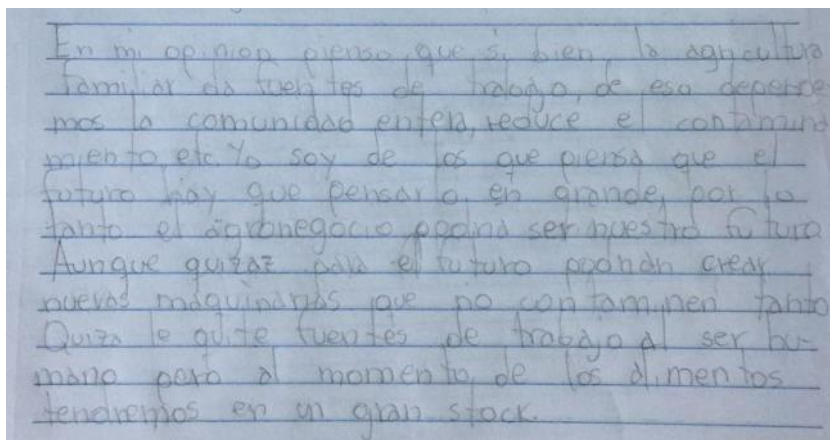 En mi opinion pienso, que si bien, la agricultura
familiar da fuentes de trabajo, de esa depende
mos la comunidad entera, reduce el contamina
miento, etc. Yo soy de los que piensa que el
futuro hay que pensarlo en grande, por lo
tanto el agronegocio podria ser nuestro futuro
Aunque quizaz para el futuro podrian crear
nuevas maquinarias que no contaminen tanto
Quiza le quite fuentes de trabajo al ser hu-
mano pero al momento de los alimentos
tendremos en un gran stock.